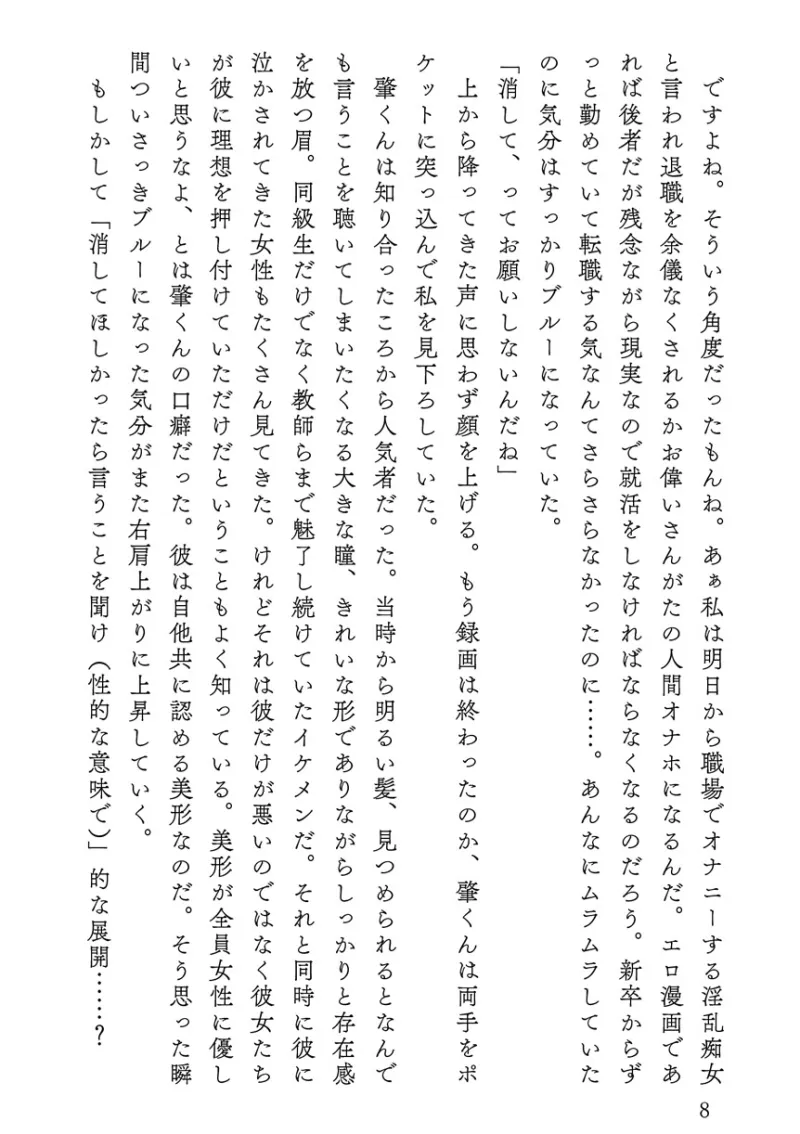 ですよね。そういう角度だったもんね。あぁ私は明日から職場でオナニーする淫乱痴女
と言われ退職を余儀なくされるかお偉いさんがたの人間オナホになるんだ。エロ漫画であ
れば後者だが残念ながら現実なので就活をしなければならなくなるのだろう。新卒からず
っと勤めていて転職する気なんてさらさらなかったのに……。あんなにムラムラしていた
のに気分はすっかりブルーになっていた。
「消して、ってお願いしないんだね」
上から降ってきた声に思わず顔を上げる。もう録画は終わったのか、肇くんは両手をポ
ケットに突っ込んで私を見下ろしていた。
肇くんは知り合ったころから人気者だった。当時から明るい髪、見つめられるとなんで
も言うことを聴いてしまいたくなる大きな瞳、きれいな形でありながらしっかりと存在感
を放つ眉。同級生だけでなく教師らまで魅了し続けていたイケメンだ。それと同時に彼に
泣かされてきた女性もたくさん見てきた。けれどそれは彼だけが悪いのではなく彼女たち
が彼に理想を押し付けていただけだということもよく知っている。美形が全員女性に優し
いと思うなよ、とは肇くんの口癖だった。彼は自他共に認める美形なのだ。そう思った瞬
間ついさっきブルーになった気分がまた右肩上がりに上昇していく。
もしかして「消してほしかったら言うことを聞け（性的な意味で）」的な展開……？
8